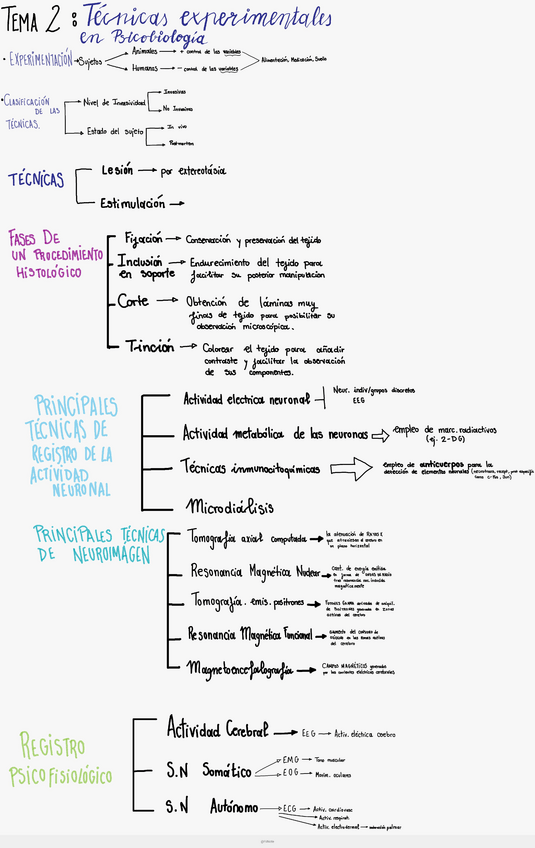 TEMA 2 : Técnicas experimentales
en Psicobiología
• EXPERIMENTACIÓN → Sujetos
Animales → + control de las variables
Humanos → - control de las variables
Alimentación, Medicación, Sueño
• CLASIFICACIÓN
DE LAS
TÉCNICAS.
Nivel de Invasividad
Invasivas
No Invasivas
Estado del sujeto
In vivo
Postmortem
TÉCNICAS
Lesión → por estereotáxia
Estimulación →
FASES DE
UN PROCEDIMIENTO
HISTOLÓGICO
Fijación → Conservación y preservación del tejido
Inclusión → Endurecimiento del tejido para
en soporte facilitar su posterior manipulación
Corte → Obtención de láminas muy
finas de tejido para posibilitar su
observación microscópica.
Tinción → Colorear el tejido para añadir
contraste y facilitar la observación
de sus componentes.
PRINCIPALES
TÉCNICAS DE
REGISTRO DE LA
ACTIVIDAD
NEURONAL
Actividad electrica neuronal
Neur. indiv/grupos discretos
EEG
Actividad metabólica de las neuronas ⇒ empleo de marc. radiactivos
(ej. 2-DG)
Técnicas inmunocitoquímicas ⇒ empleo de anticuerpos para la
detección de elementos neuronales
Microdiálisis
PRINCIPALES TÉCNICAS
DE NEUROIMAGEN
Tomografía axial computada → la atenuación de RAYOS X
que atraviesan el cerebro en
un plano horizontal
Resonancia Magnética Nuclear → Cant. de energía emitida
en forma de
magnéticamente
Tomografía. emis. positrones →
activas del cerebro
Resonancia Magnética Funcional → aumento del consumo de
en las zonas activas
del cerebro
Magnetoencefalografía → CAMPOS MAGNÉTICOS generados
por las corrientes eléctricas cerebrales
REGISTRO
PSICOFISIOLÓGICO
Actividad Cerebral → EEG → Activ. eléctrica cerebro
S.N Somático
EMG → Tono muscular
EOG → Movim. oculares
S.N Autónomo
ECG → Activ. cardíaca
Activ. respirat.
Activ. electrodermal → sudoración palmar